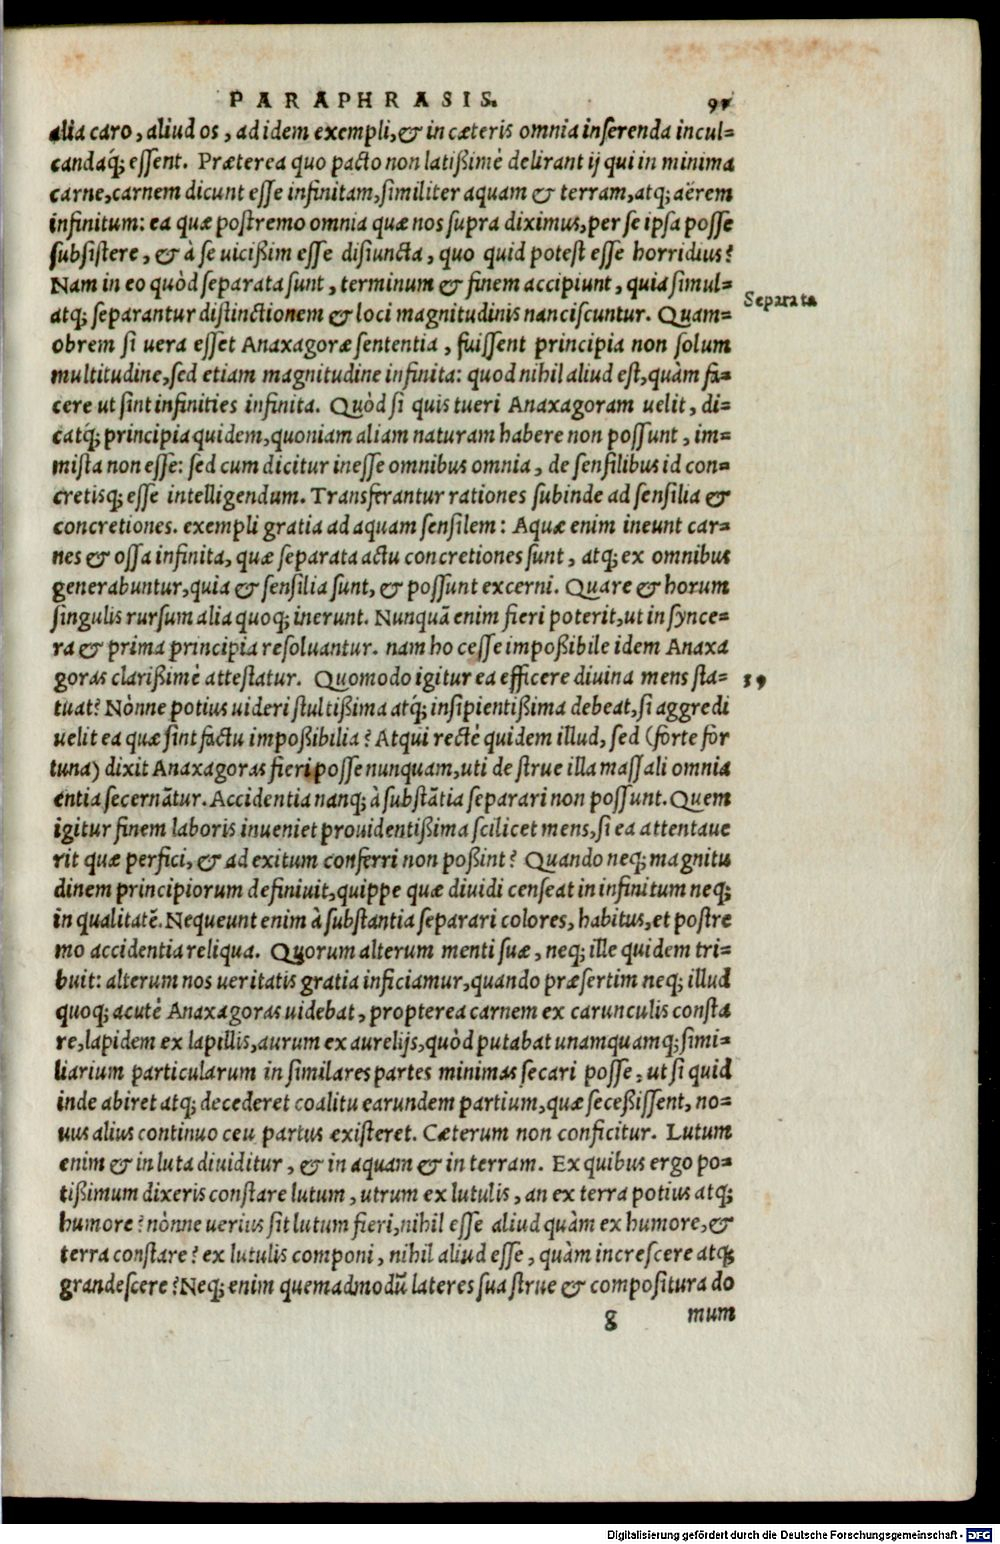 PARAPHRASIS. 97
alia caro, aliud os, ad idem exempli, & in cæteris omnia inserenda incul=
candaq́; essent. Præterea quo pacto non latißimè delirant ij qui in minima
carne, carnem dicunt esse infinitam, similiter aquam & terram, atq; aërem
infinitum: ea quæ postremo omnia quæ nos supra diximus, per se ipsa posse
subsistere, & à se uicißim esse disiuncta, quo quid potest esse horridius?
Nam in eo quòd separata sunt, terminum & finem accipiunt, quia simul=
Separata
atq; separantur distinctionem & loci magnitudinis nanciscuntur. Quam=
obrem si uera esset Anaxagoræ sententia, fuissent principia non solum
multitudine, sed etiam magnitudine infinita: quod nihil aliud est, quàm fa=
cere ut sint infinities infinita. Quòd si quis tueri Anaxagoram uelit, di=
catq́; principia quidem, quoniam aliam naturam habere non possunt, im=
mista non esse: sed cum dicitur inesse omnibus omnia, de sensilibus id con=
cretisq; esse intelligendum. Transferantur rationes subinde ad sensilia &
concretiones. exempli gratia ad aquam sensilem: Aquæ enim ineunt car=
nes & ossa infinita, quæ separata actu concretiones sunt, atq; ex omnibus
generabuntur, quia & sensilia sunt, & possunt excerni. Quare & horum
singulis rursum alia quoq; inerunt. Nunquā enim fieri poterit, ut in synce=
ra & prima principia resoluantur. nam ho cesse impoßibile idem Anaxa
goras clarißimè attestatur. Quomodo igitur ea efficere diuina mens sta=
39
tuat? Nònne potius uideri stultißima atq́; insipientißima debeat, si aggredi
uelit ea quæ sint factu impoßibilia? Atqui rectè quidem illud, sed (forte for
tuna) dixit Anaxagoras fieri posse nunquam, uti de strue illa massali omnia
entia secernātur. Accidentia nanq; à substātia separari non possunt. Quem
igitur finem laboris inueniet prouidentißima scilicet mens, si ea attentaue
rit quæ perfici, & ad exitum conferri non poßint? Quando neq; magnitu
dinem principiorum definiuit, quippe quæ diuidi censeat in infinitum neq;
in qualitatē. Nequeunt enim à substantia separari colores, habitus, et postre
mo accidentia reliqua. Quorum alterum menti suæ, neq; ille quidem tri=
buit: alterum nos ueritatis gratia inficiamur, quando præsertim neq; illud
quoq; acutè Anaxagoras uidebat, propterea carnem ex carunculis consta
re, lapidem ex lapillis, aurum ex aurelijs, quòd putabat unamquamq; simi=
liarium particularum in similares partes minimas secari posse, ut si quid
inde abiret atq; decederet coalitu earundem partium, quæ seceßissent, no=
uus alius continuo ceu partus existeret. Cæterum non conficitur. Lutum
enim & in luta diuiditur, & in aquam & in terram. Ex quibus ergo po=
tißimum dixeris constare lutum, utrum ex lutulis, an ex terra potius atq;
humore? nònne uerius sit lutum fieri, nihil esse aliud quàm ex humore, &
terra constare? ex lutulis componi, nihil aliud esse, quàm increscere atq;
grandescere? Neq; enim quemadmodū lateres sua strue & compositura do
g mum
Digitalisierung gefördert durch die Deutsche Forschungsgemeinschaft - DFG